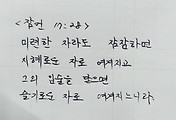 <잠언 17:28>
미련한 자라도 잠잠하면
지혜로운 자로 여겨지고
그의 입술을 닫으면
슬기로운 자로 여겨지느니라.